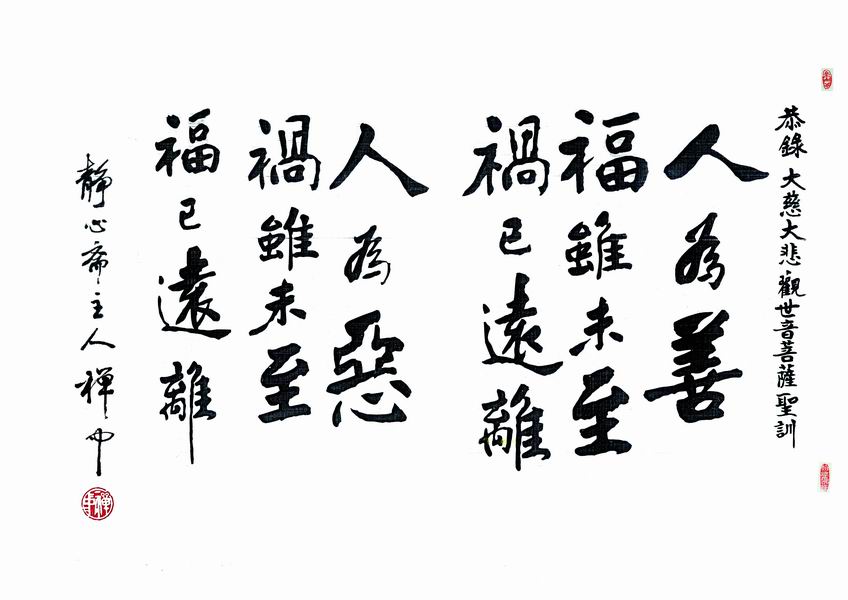 恭錄大慈大悲觀世音菩薩聖訓
人為善
福雖未至
禍已遠離
人為惡
禍雖未至
福已遠離
靜心齋主人禪中